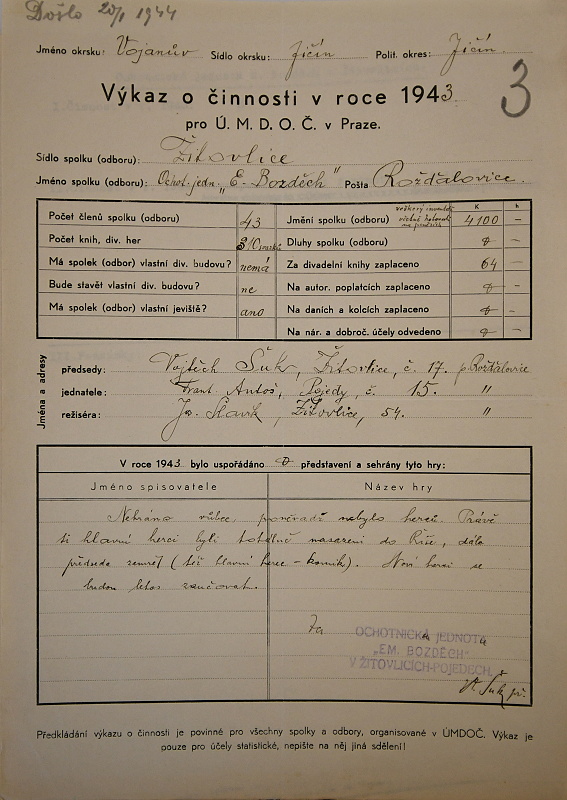 Došlo 20/1 1944
Jméno okrsku: Vojanův Sídlo okrsku: Jičín Polit. okres: Jičín.
3
Výkaz o činnosti v roce 1943.
pro Ú. M. D. O. Č. v Praze.
Sídlo spolku (odboru): Žitovlice
Jméno spolku (odboru): Ochot. jedn. „E. Bozděch" Pošta Rožďalovice.
K h
Počet členů spolku (odboru) 43 Jmění spolku (odboru) veškerý inventář včetně hotovosti 4100 —
Počet knih, div. her 310 Dluhy spolku (odboru) 0 —
Má spolek (odbor) vlastní div. budovu? nemá Za divadelní knihy zaplaceno 64 —
Bude stavět vlastní div. budovu? ne Na autor. poplatcích zaplaceno 0 —
Má spolek (odbor) vlastní jeviště? ano Na daních a kolcích zaplaceno 0 —
Na nár. a dobroč. účely odvedeno 0 —
Jména a adresy
předsedy: Vojtěch Šuk, Žitovlice, č. 17. p. Rožďalovice
jednatele: Frant. Antoš, Pojedy, č. 15. "
režiséra: Jos. Slavík, Žitovlice, 54. "
V roce 1943 bylo uspořádáno 0 představení a sehrány tyto hry:
Jméno spisovatele Název hry
Nehráno vůbec, poněvadž nebylo herců. Právě
ti hlavní herci byli totálně nasazeni do Říše, dále
předseda zemřel (též hlavní herec - komik). Noví herci se
budou letos zaučovat.
Za OCHOTNICKÁ JEDNOTA
„EM. BOZDĚCH"
V ŽITOVLICÍCH-POJEDECH.
Vt. Šuk př.
Předkládání výkazu o činnosti je povinné pro všechny spolky a odbory, organisované v ÚMDOČ. Výkaz je
pouze pro účely statistické, nepište na něj jiná sdělení!